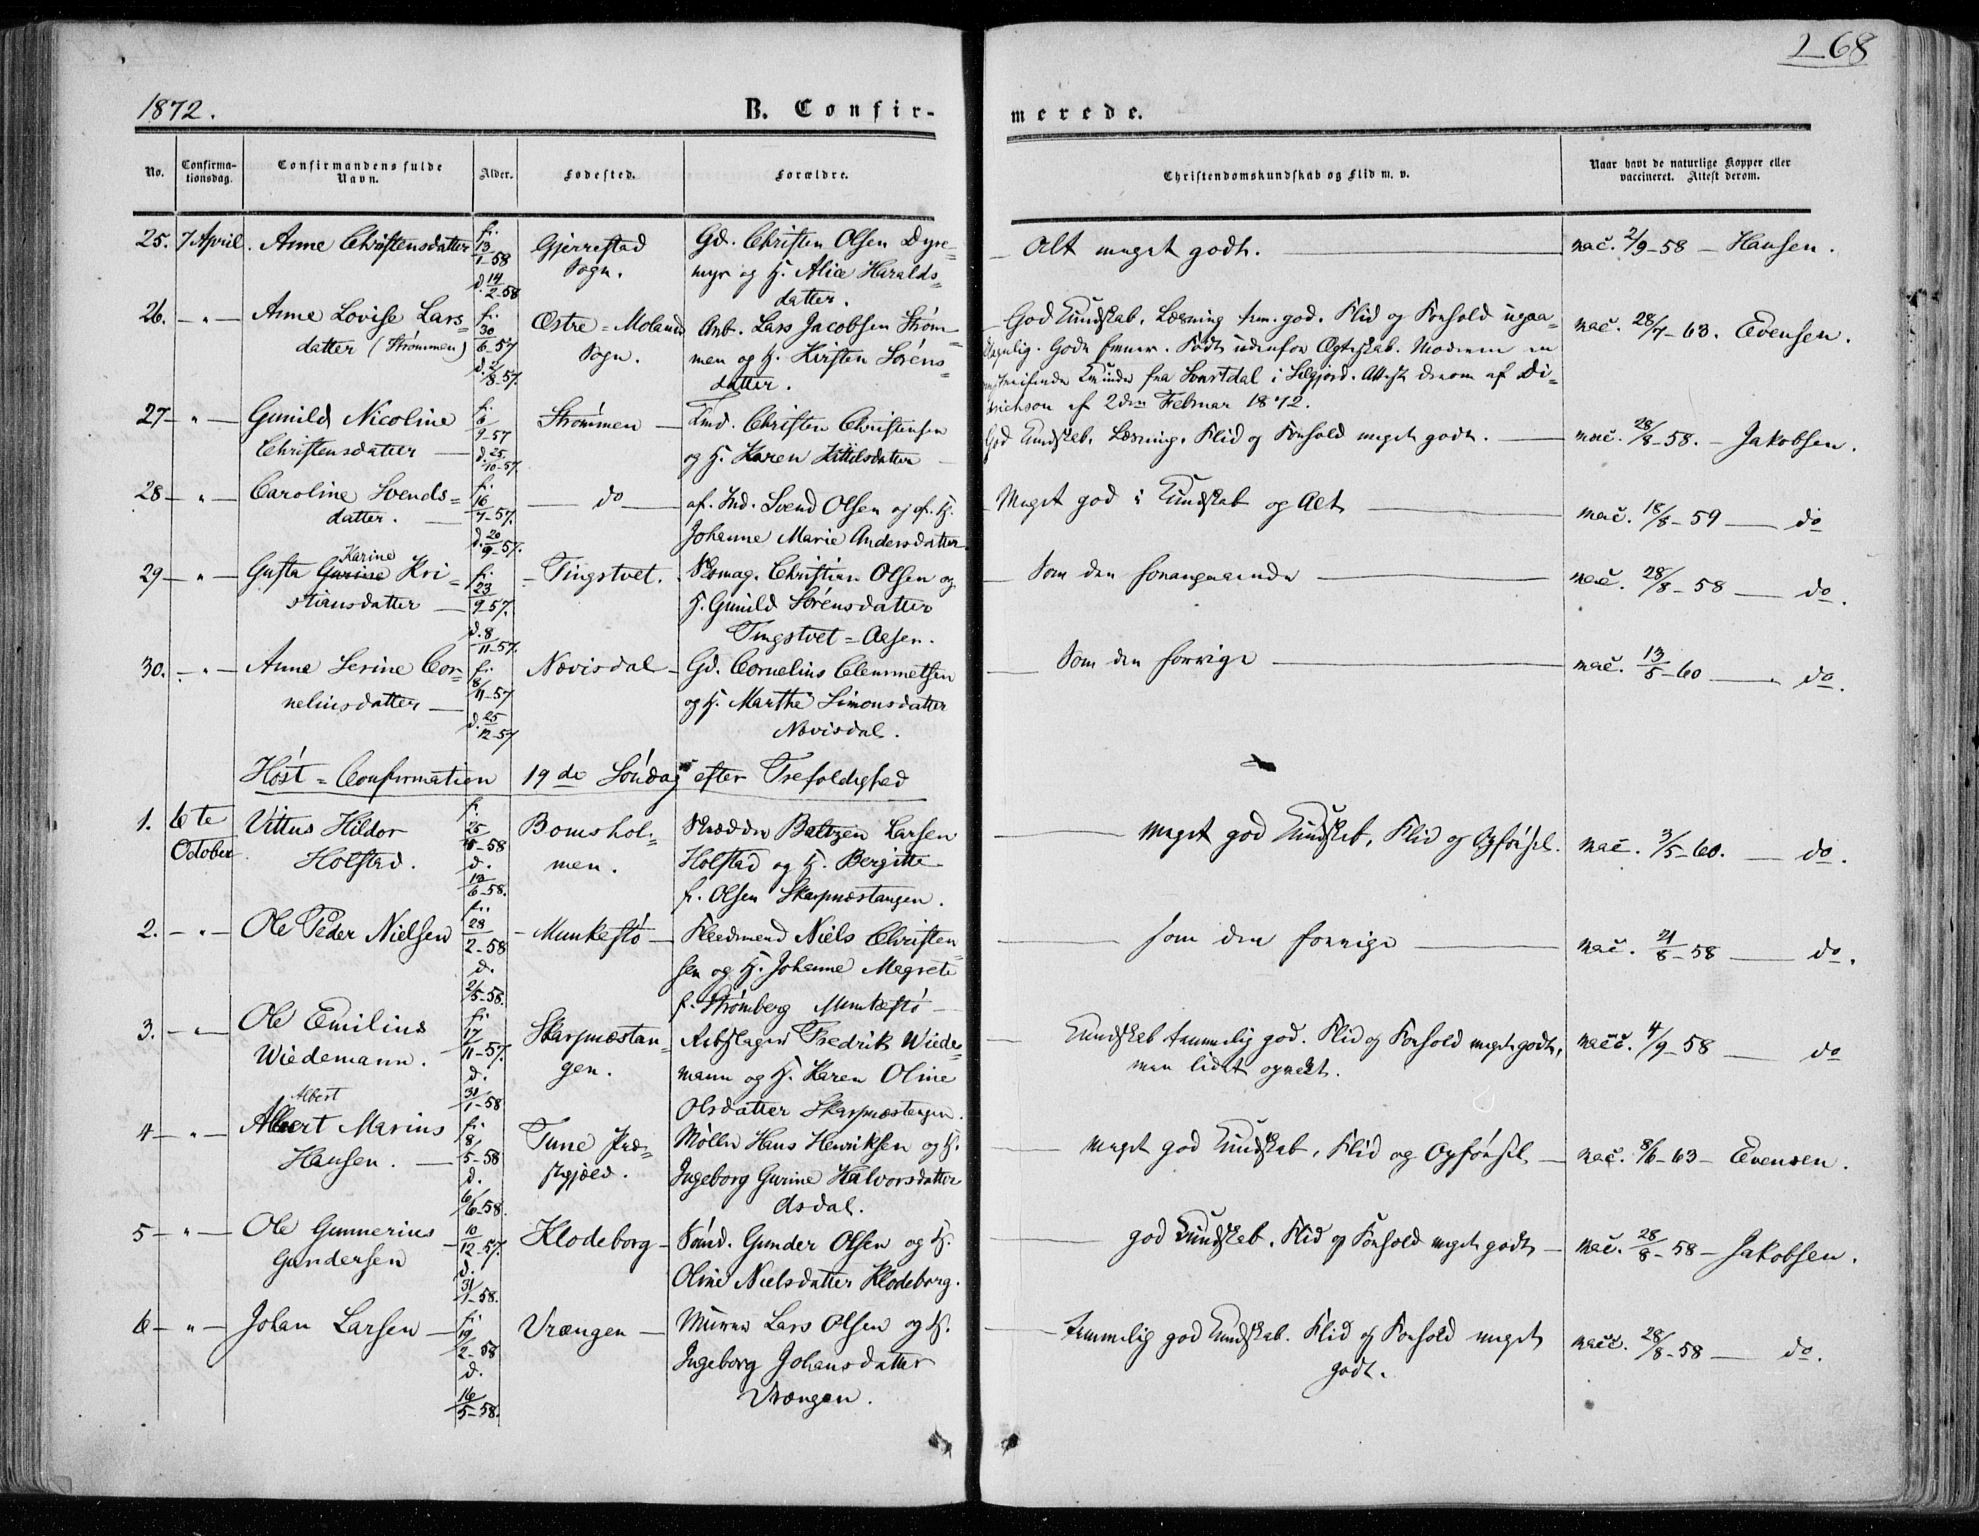 268
1872.
B. Confir-
merede.
No.
Confirma-
tionsdag.
Confirmandens fulde
Navn.
Alder.
Fødested.
Forældre.
Christendomskundskab og Flid m. v.
Naar havt de naturlige Kopper eller
vaccineret. Attest derom.
25. 7 April. Anne Christensdatter f. 13/1-58 Gjerrestad Gd. Christen Olsen Dyre- Alt meget godt. vac. 2/9-58 — Hansen.
d. 14/2-58 Sogn. myr og H. Alice Haralds-
datter.
26. — " — Anne Lovise Lars= f. 30/6-57 Østre=Moland Arb. Lars Jacobsen Strøm- God Kundskab. Læsning tem. god. Flid og Forhold vac. 28/7-63. Evensen.
datter (Strømmen) d. 2/8-57. Sogn. men og H. Kirsten Sørens= Gode Evner. Født udenfor Ægteskab. Moderen en
datter. Kvinde fra i Seljord. Attest derom af Di-
richson af 2den Februar 1872.
27 — " — Gunild Nicoline f. 6/9-57 Strømmen — Ind. Christen Christensen God Kundskab. Læsning, Flid og Forhold meget godt. — vac. 28/8-58. — Jakobsen.
Christensdatter — d. 25/10-57. og H. Karen Kittilsdatter
28 — " — Caroline Svends= f. 16/7-57. — do — af. Ind. Svend Olsen og af. H. Meget god i Kundskab og Alt — vac. 18/8-59 — do
datter. — d. 20/9-57. Johanne Marie Andersdatter.
Karine
29 — " — Gusta Kri= f. 23/9-57. Tingstvet. Skomag. Christian Olsen og Som den foregaaende — vac. 28/8-58 — do.
stiansdatter — d. 8/11-57. H. Gunild Sørensdatter
Tingstvet=Aasen.
30. — " — Anne Serine Cor= f. 8/11-57 Nævisdal — Gd. Cornelius Clemmetsen Som den forrige — vac. 13/5-60 — do.
neliusdatter — d. 25/12-57 og H. Marthe Simonsdatter
Nævisdal.
Høst=Confirmation 19de Søndag efter Trefoldighed
1. 6te Vittus Hildor f. 25/-58 Bomshol= Skrædder Baltzen Larsen meget god Kundskab, Flid og Opførsel. vac. 3/5-60. — do.
October. Holstad. d. 13/6-58. men. Holstad og H. Bergitte
f. Olsen Skarpnæstangen.
2. — " — Ole Peder Nielsen f. 28/2-58 — Munkestø — Niels Christen= som den forrige — vac. 21/8-58 — do.
d. 2/5-58. sen og H. Johanne Magrete
f. Strømberg Munkestø —
3. — " — Ole Emilius f. 17/11-57. Skarpnæstan- Fredrik Wiede= Kundskab temmelig god. Flid og Forhold meget godt, vacc. 4/9-58 — do
Wiedemann. d. 31/1-58 gen. mann og H. Karen Oline men lidet opvakt.
Olsdatter Skarpnæstangen.
Albert
4 — " — Albert Marius f. 8/5-58 Tune Præ= Møller Hans Henriksen og H. meget god Kundskab, Flid og Opførsel — vac. 8/6-63 — Evensen.
Hansen. — d. 6/6-58. stgjeld. Ingeborg Gurine Halvorsdatter
dsdal.
5 — " — Ole Gunnerius 10/12-57. Klodeborg — Sømd. Gunder Olsen og H. god Kundskab. Flid og Forhold meget godt — vac. 28/8-58 — Jakobsen.
Gundersen d. 31/1-58. Oline Nielsdatter Klodeborg.
6 — " — Johan Larsen — f. 19/2-58 Vrængen — Murer Lars Olsen og H. temmelig god Kundskab. Flid og Forhold meget vacc. 28/8-58 — do.
d. 16/5-58. Ingeborg Johansdatter godt.
Vrængen.